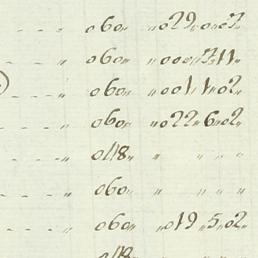 - - - " 060" "029"0"07"
- - - " 060" "000"7"11"
- - - " 060" "001"1"02"
- - - - " 060" "022"6"02"
- - - - " 048" " " " "
- - - - " 060" " " " "
- - - - " 060" "019"5"02"
048